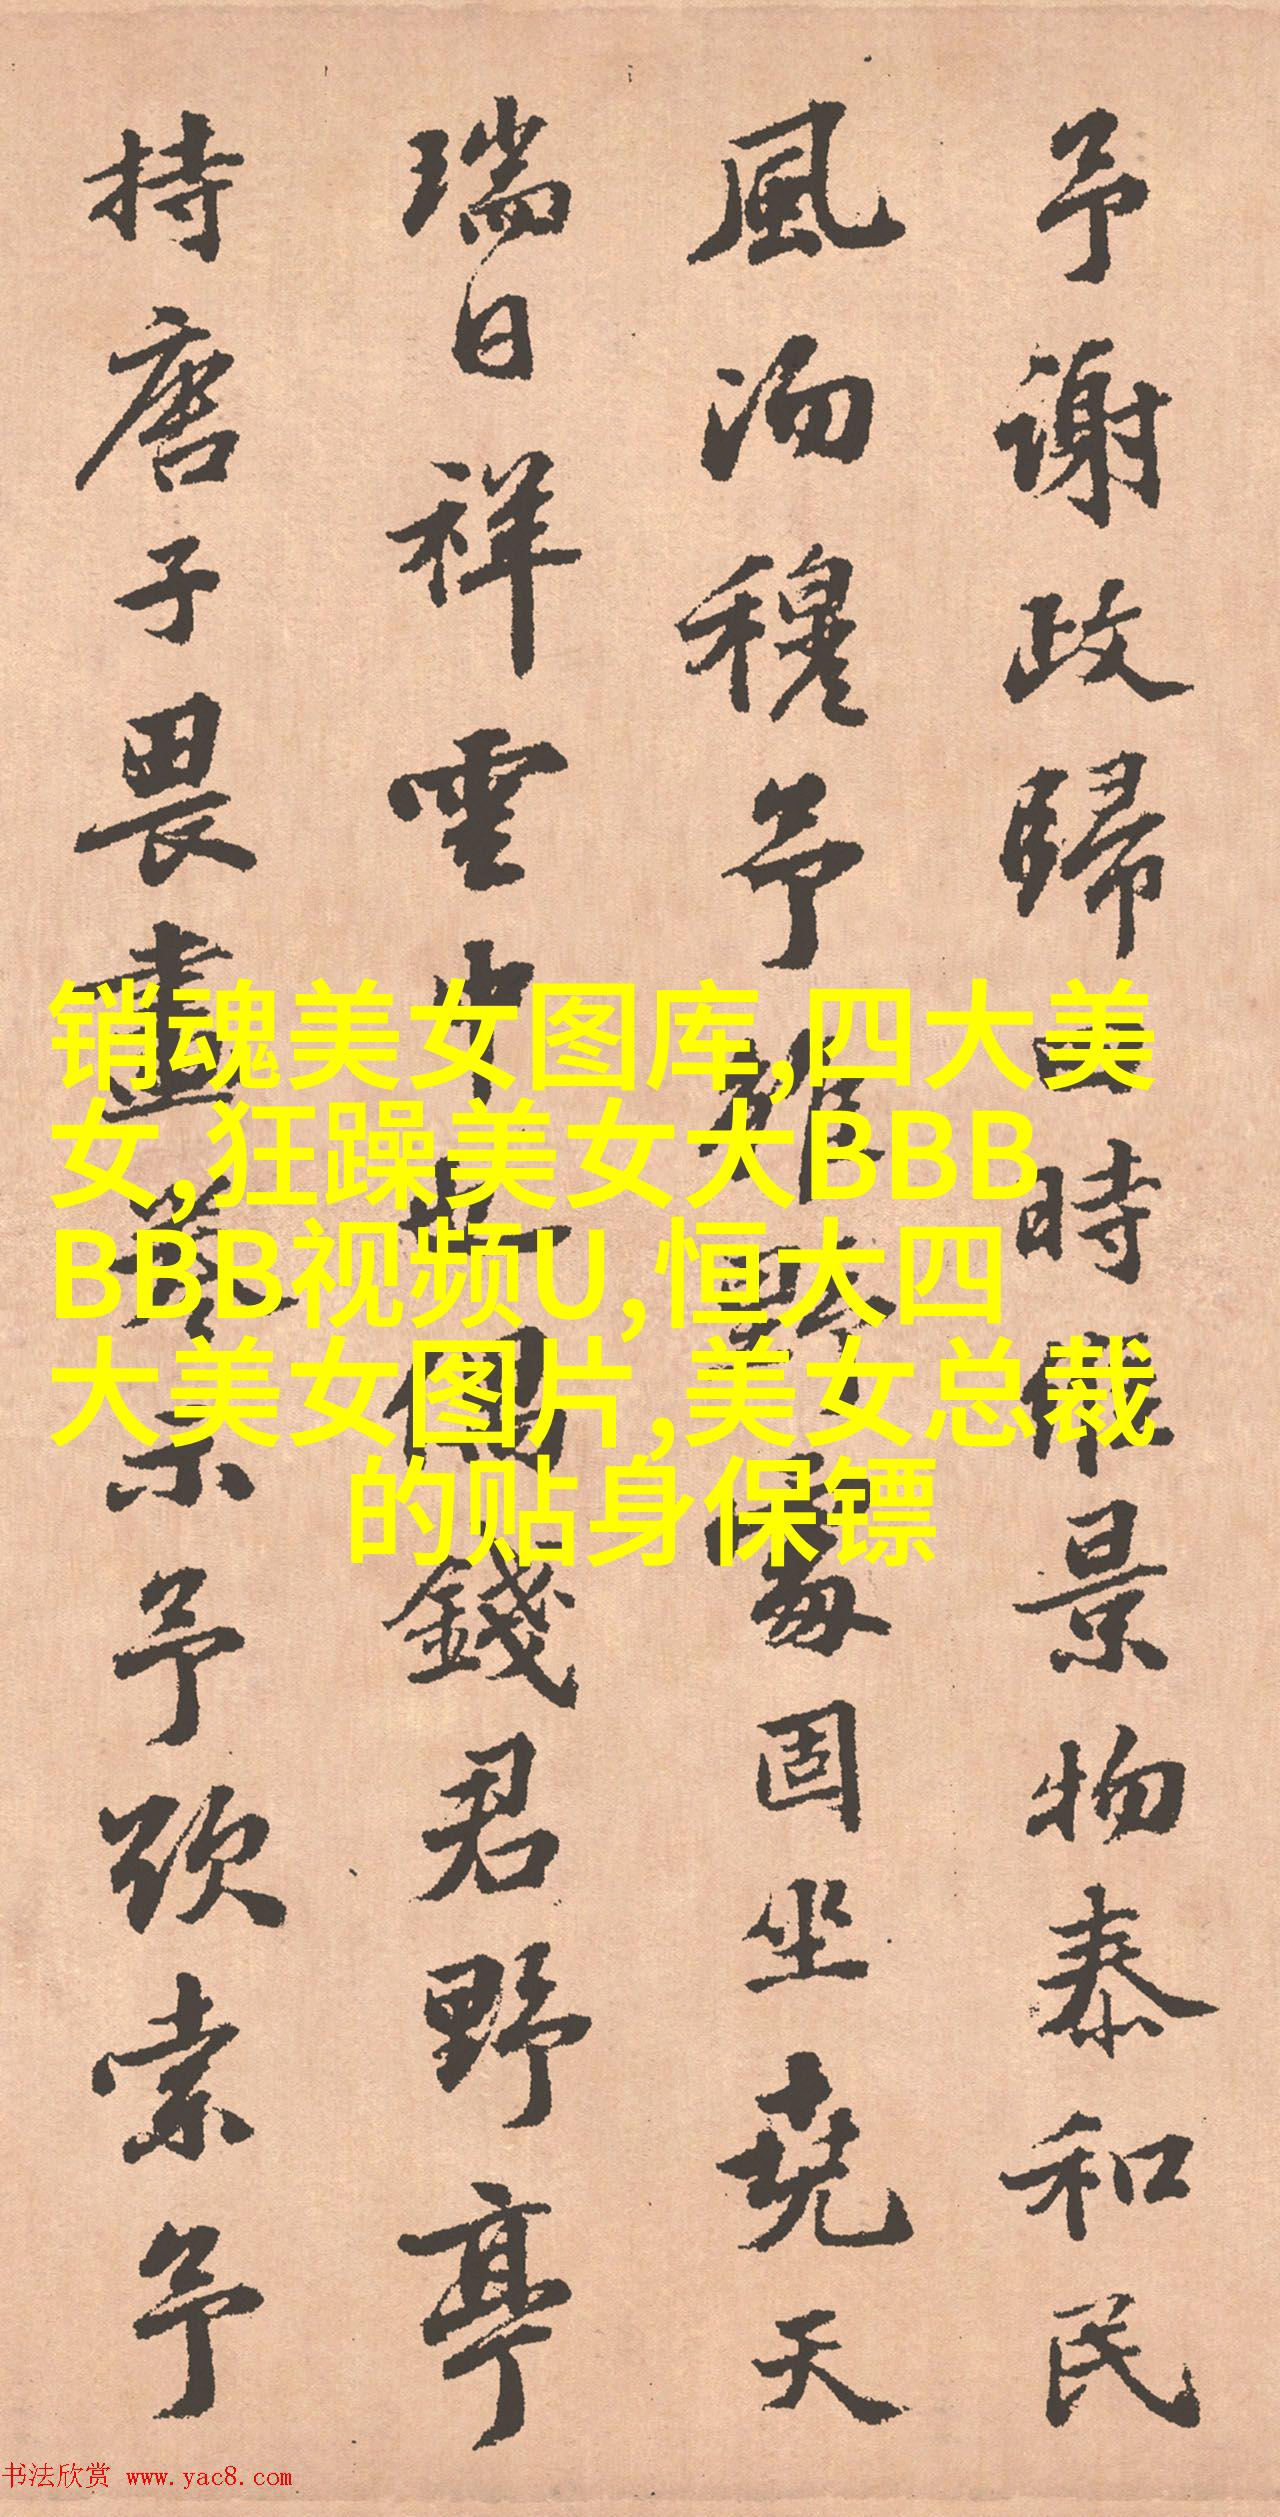 予謝政歸時景物泰和民
風沕穆予固坐堯天
瑞日祥雲中錢君野亭
持唐子畏畫示予索予
销魂美女图库,四大美
女,狂躁美女大BBB
BBB视频U,恒大四
大美女图片,美女总裁
的贴身保镖
书法欣赏 www.yac8.com